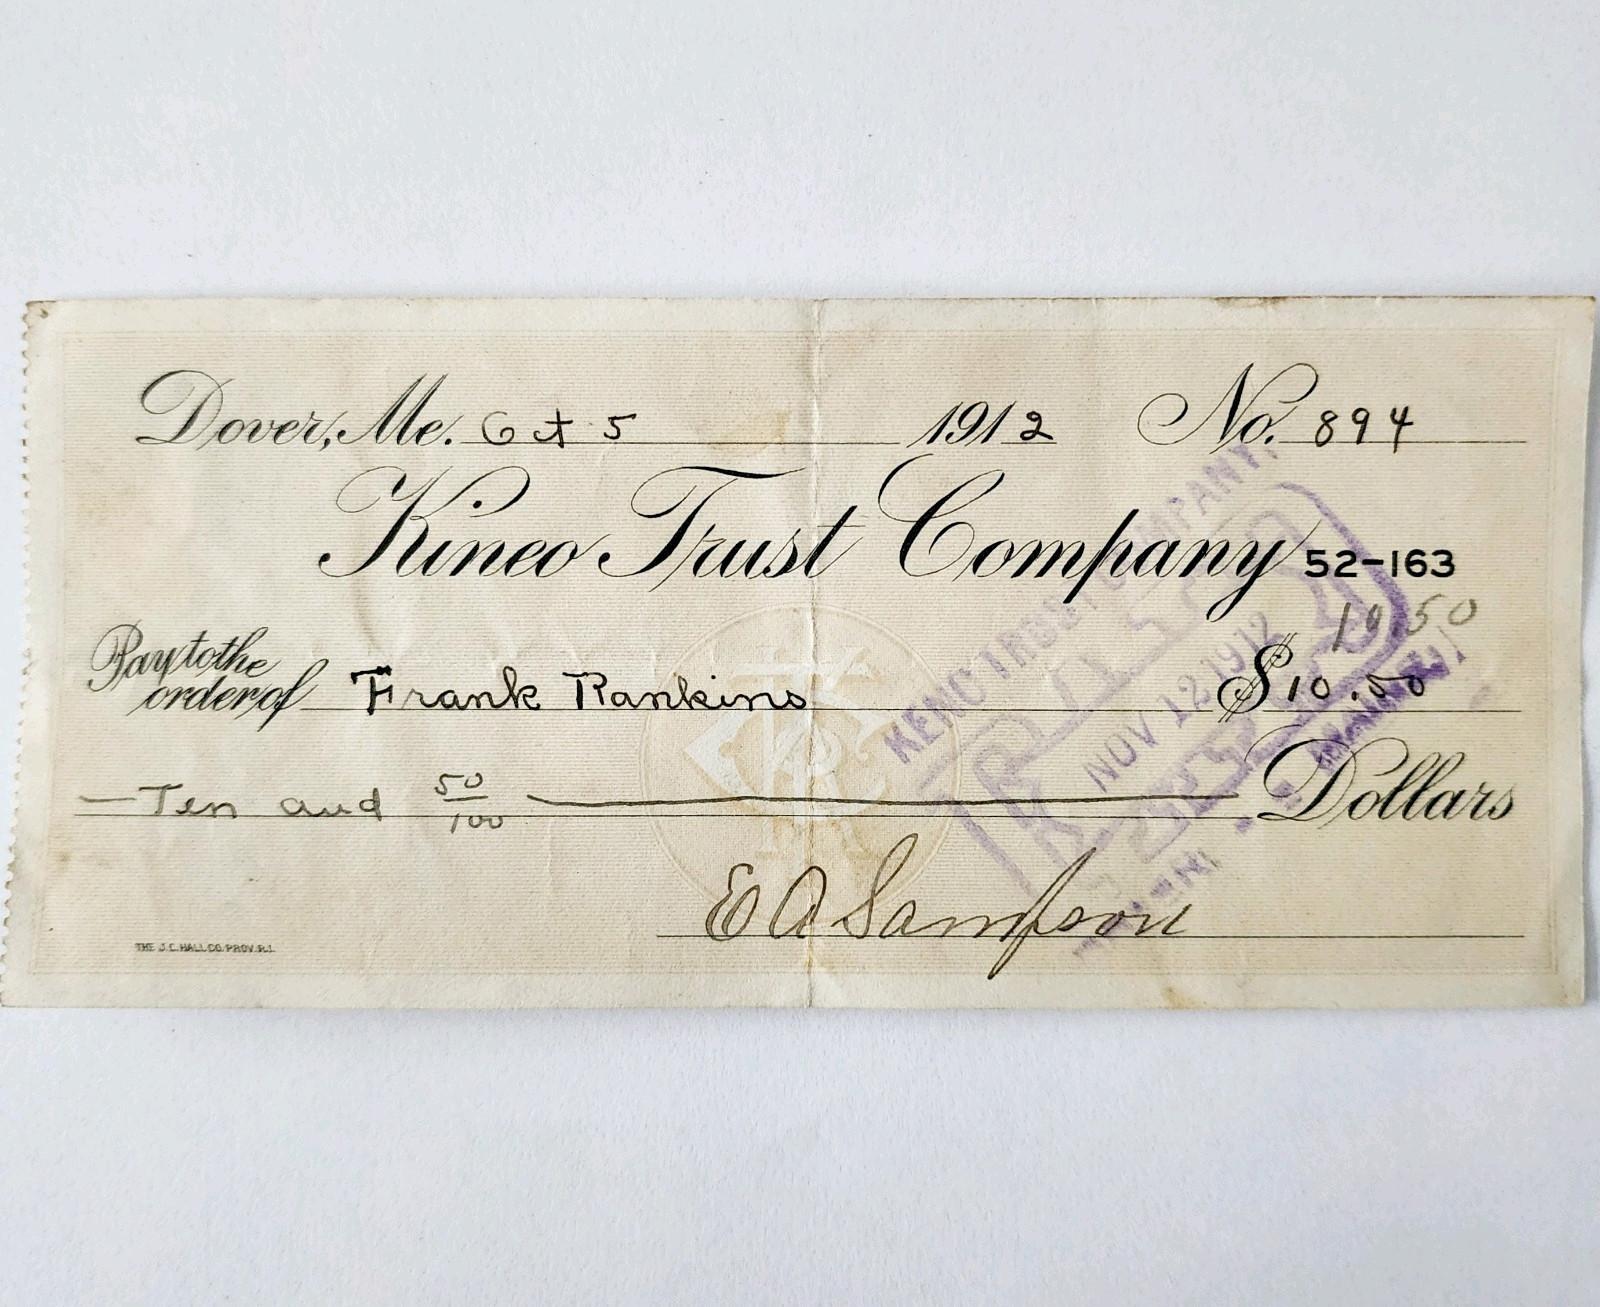 Dover, Me. Oct 5 1912 No. 894
Kineo Trust Company 52-163
10.50
Pay to the order of Frank Rankins $10.00
Ten and 50/100 Dollars
E A Sampson
THE J.C. HALL CO. PROV. R.I.
KINEO TRUST COMPANY,
PAID
NOV 12 1912